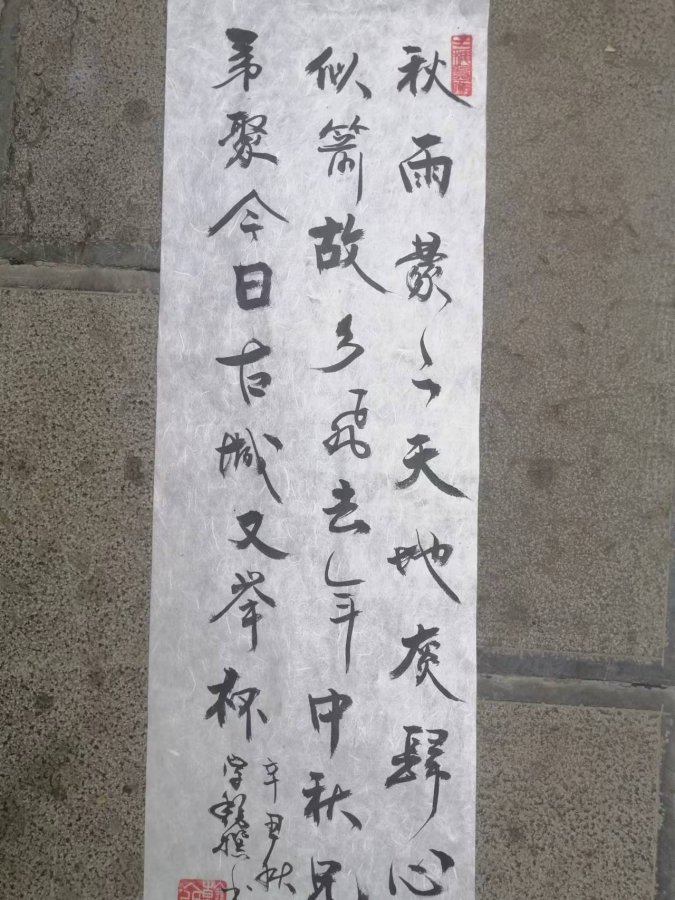 秋雨蒙々天地灰歸心
似箭故乡飛去年中秋兄
弟聚今日古城又举杯
辛丑秋